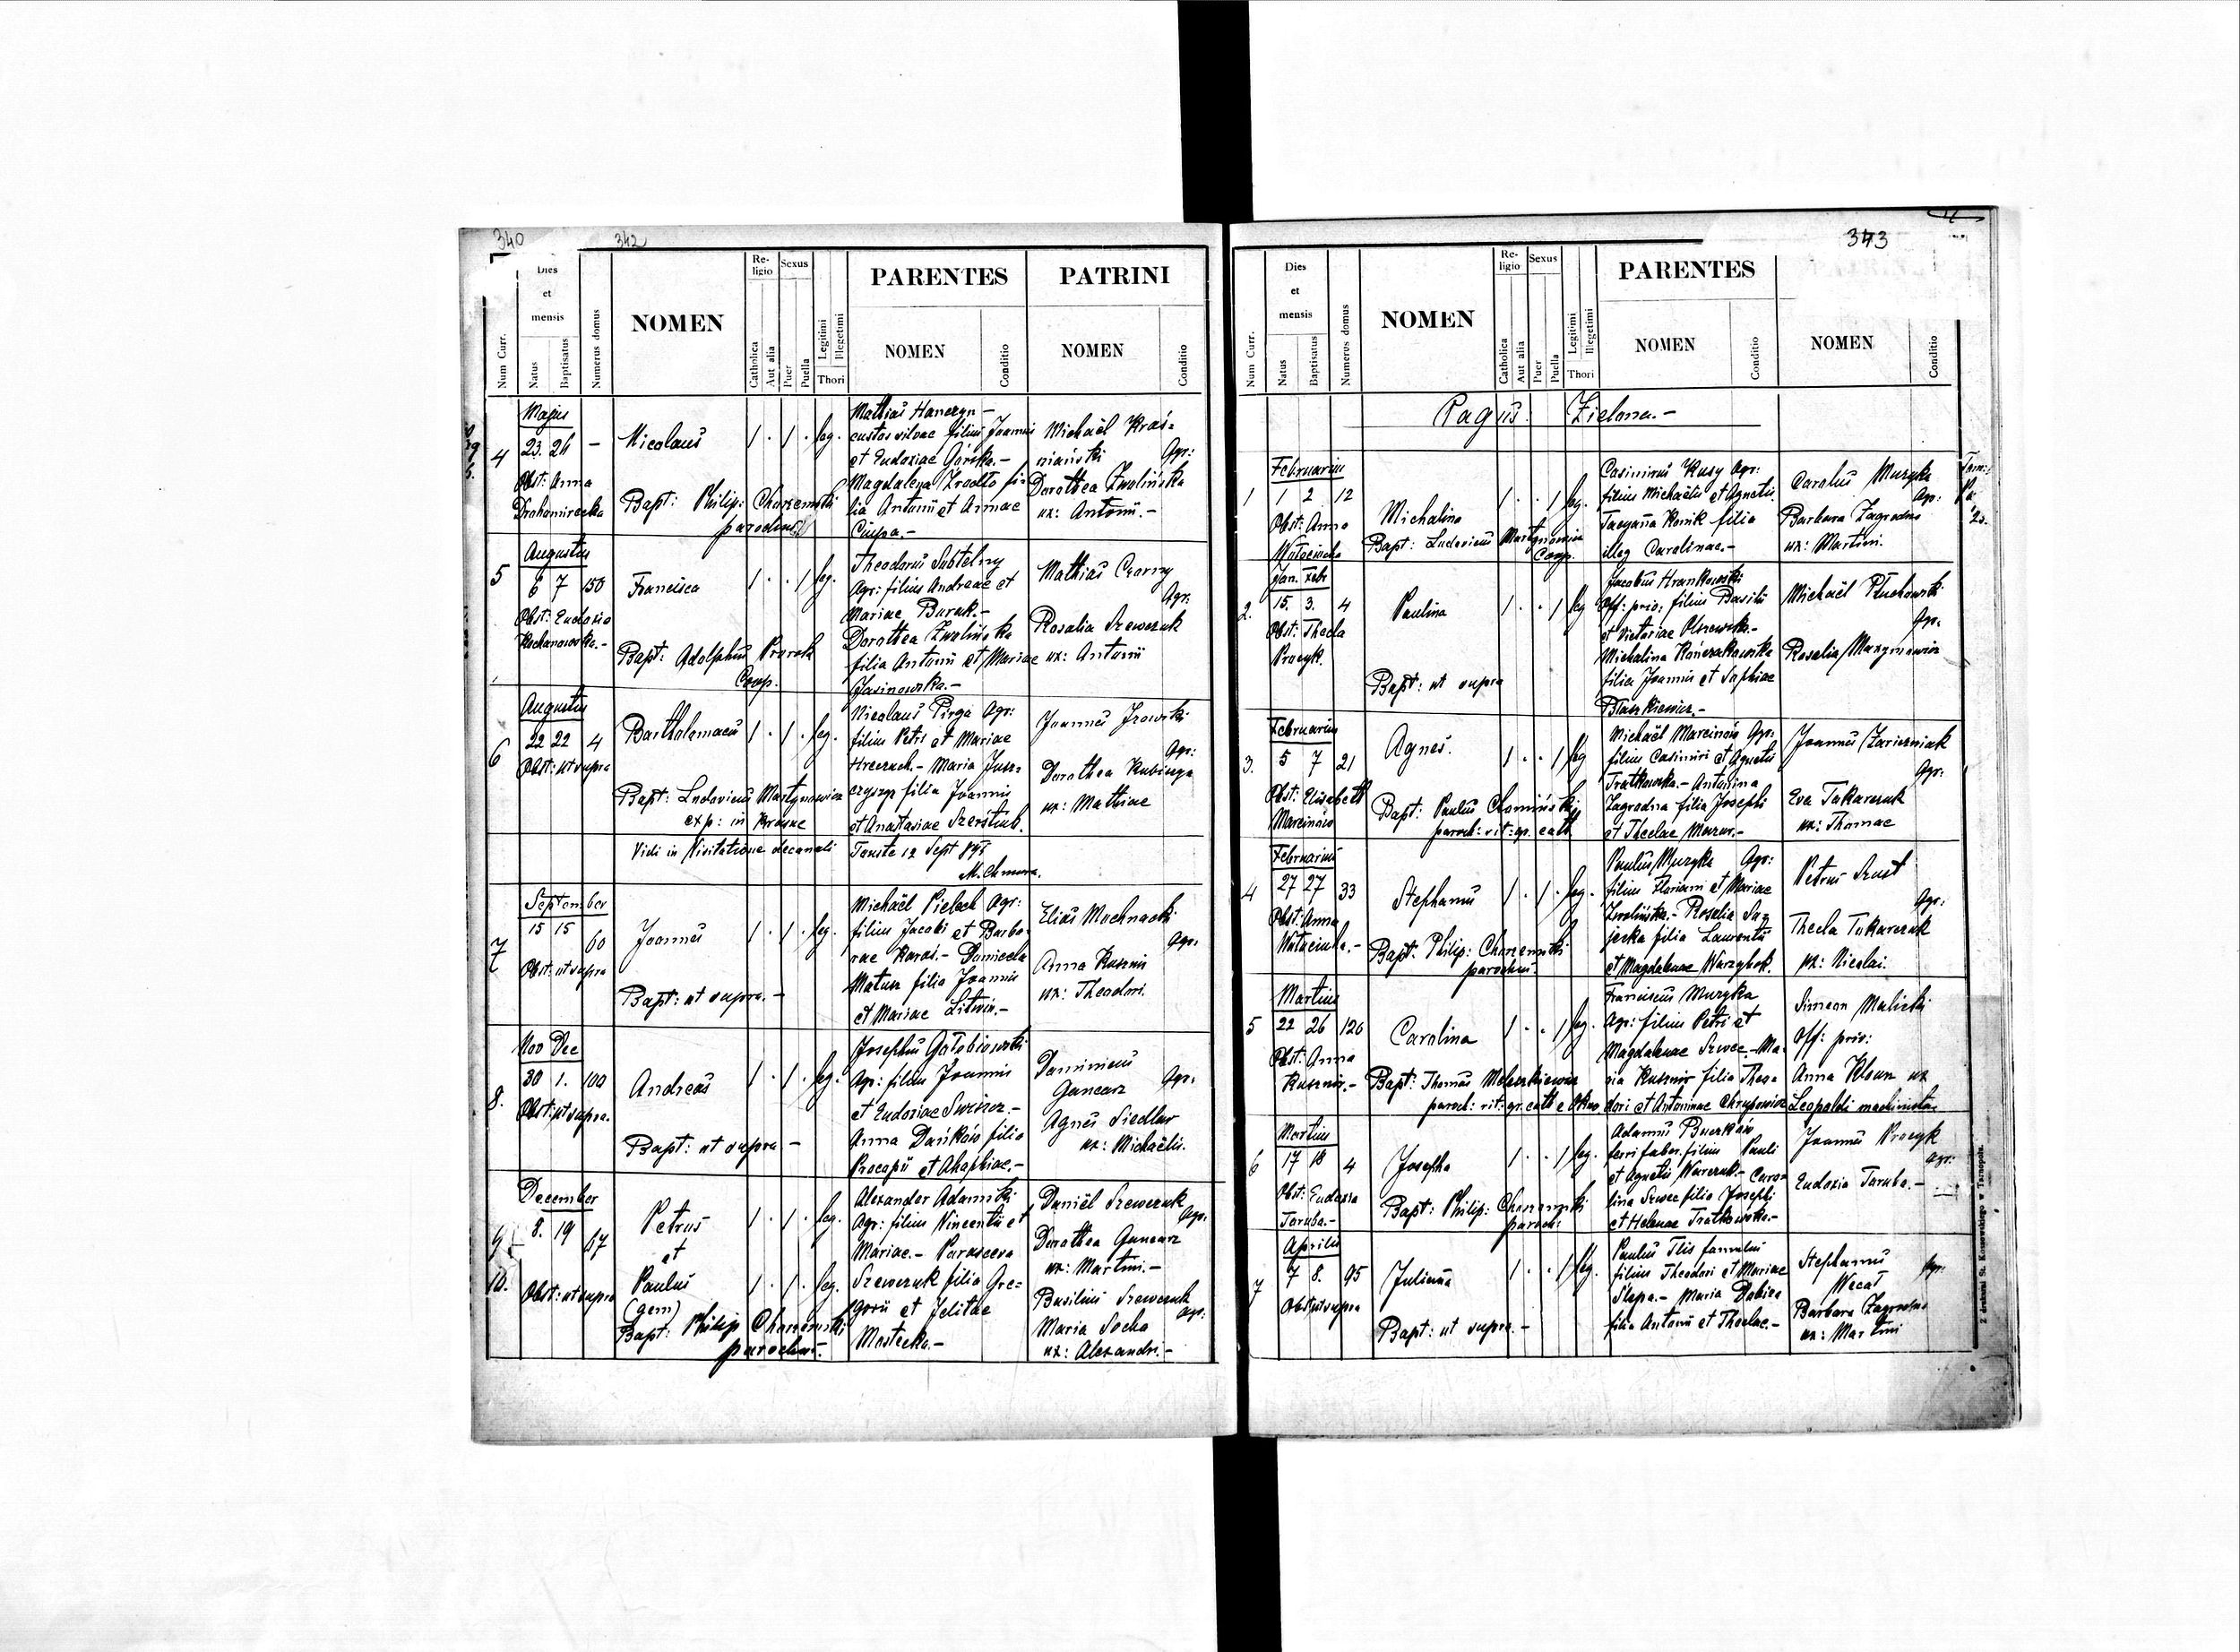 340
342
Dies et mensis
Re-ligio
Sexus
PARENTES
PATRINI
Num Curr.
Natus
Baptisatus
Numerus domus
NOMEN
Catholica
Aut alia
Puer
Puella
Legitimi
Illegetimi
Thori
NOMEN
Conditio
NOMEN
Conditio
Majus
4
23. 26 –
Obst: Anna
Nicolaus
Bapt: Philip: Charzewski
parochus
1 . 1 . leg.
Mathias Hanczyn –
custos silvae filius Joannis
et Eudoxiae Górska. –
Magdalena Źródło fi-
lia Antonii et Annae
Ciupa. –
Michaël Kraś=
niański Agr:
Dorothea Zwolińska
ux: Antonii. –
Augustus
5
6 7 150
Obst: Eudoxia
Kochanowska. –
Francisca
Bapt: Adolphus Prorok
Coop.
1 . . 1 leg.
Theodorus Subtelny
Agr: filius Andreae et
Mariae Burak. –
Dorothea Zwolińska
filia Antonii et Mariae
Jasinowska. –
Mathias Czorny
Agr:
Rosalia Szewczuk
ux: Antonii
Augustus
6
22 22 4
Obst: ut supra
Bartholomaeus
Bapt: Ludovicus Martynowicz
exp: in Krasne
1 . 1 . leg.
Nicolaus Pirga Agr:
filius Petri et Mariae
Hreczuch. – Maria Jusz=
czyszyn filia Joannis
et Anastasiae
Joannes
Agr:
Dorothea
ux: Mathiae
Vidi in Visitatione decanali Touste 12 Sept
M. Chmura.
September
7
15 15 60
Obst: ut supra
Joannes
Bapt: ut supra. –
1 . 1 . leg.
Michaël Pielech Agr:
filius Jacobi et Barba-
rae Karaś. – Danicela
Matusz filia Joannis
et Mariae Litwin. –
Elias Mochnacki
Agr:
Anna Kusznir
ux: Theodori.
Nov Dec
8.
30 1. 100
Obst: ut supra.
Andreas
Bapt: ut supra –
1 . 1 . leg.
Josephus Gołębiowski
Agr: filius Joannis
et Eudoxiae
Anna Dańków filia
Procopii et Ahaphiae. –
Dominicus
Guncarz Agr:
Agnes Siedlar
ux: Michaëlis.
December
9
8. 19 67
Petrus
et
10.
Obst: ut supra
Paulus
(gem)
Bapt: Philip Charzewski
parochus. –
1 . 1 . leg.
1 . 1 . leg.
Alexander Adamski
Agr: filius Vincentii et
Mariae. – Parasceva
Szewczuk filia Gre=
gorii et Jelitae
Mostecka. –
Daniël Szewczuk
Agr:
Dorothea Guncarz
ux: Martini. –
Basilius Szewczuk
Agr:
Maria Socha
ux: Alexandri. –
343
Dies et mensis
Re-ligio
Sexus
PARENTES
Num Curr.
Natus
Baptisatus
Numerus domus
NOMEN
Catholica
Aut alia
Puer
Puella
Legitimi
Illegetimi
Thori
NOMEN
Conditio
NOMEN
Conditio
Pagus Zielona. –
Februarius
1
1 2 12
Obst: Anna
Michalina
Bapt: Ludovicus Martynowicz
Coop.
1 . . 1 leg.
Casimirus Kusy Agr:
filius Michaëlis et Agnetis
Tacyanna Kornik filia
illeg Carolinae. –
Carolus Muzyka
Agr:
Barbara Zagrodna
ux: Martini.
Jan. Feb
2.
15. 3. 4
Obst: Thecla
Procyk.
Paulina
Bapt: ut supra
1 . . 1 leg
Jacobus Hrankowski
Off: priv: filius Basilii
et Victoriae Olszewska. –
Michalina Kończakowska
filia Joannis et Sophiae
Błaszkiewicz. –
Michaël Pluchowski
Agr.
Rosalia Martynowicz
Februarius
3.
5 7 21
Obst: Elisabeth
Marcinów
Agnes.
Bapt: Paulus Chomiński
paroch: rit: gr. cath
1 . . 1 leg
Michaël Marcinów Agr:
filius Casimiri et Agnetis
Tratkowska. – Antonina
Zagrodna filia Josephi
et Theclae Mazur. –
Joannes Zarieźniak
Agr:
Eva Tokarczuk
ux: Thomae
Februarius
4
27 27 33
Obst: Anna
Stephanus
Bapt: Philip: Charzewski
parochus.
1 . 1 . leg.
Paulus Muzyka Agr:
filius Floriani et Mariae
Zwolińska. – Rosalia
filia Laurentii
et Magdalenae Warzybok.
Petrus Szust
Agr:
Thecla Tokarczuk
ux: Nicolai.
Martius
5
22 26 120
Obst: Anna
Kusznir. –
Carolina
Bapt: Thomas Moleszkiewicz
paroch: rit: gr. cath e Okno
1 . . 1 leg.
Franciscus Muzyka
Agr: filius Petri et
Magdalenae Szwec. – Ma-
ria Kusznir filia Theo=
dori et Antoninae Chrupowicz
Simeon Malicki
Off: priv:
Anna Kloun ux
Leopoldi machinista
Martius
6
17 18 4
Obst: Eudoxia
Taruba. –
Josepha
Bapt: Philip: Charzewski
paroch:
1 . . 1 leg.
Adamus Buczków
ferri faber. filius Pauli
et Agnetis Warczuk. – Caro=
lina Szwec filia Josephi
et Helenae Tratkowska. –
Joannes Procyk
Agr:
Eudoxia Taruba. –
Aprilis
7
7 8. 95
Obst: ut supra
Julianna
Bapt: ut supra. –
1 . . 1 leg.
Paulus Tlis famulus
filius Theodori et Mariae
Ślepa. – Maria Dobiza
filia Antonii et Theclae. –
Stephanus
Wecał Agr:
Barbara Zagrodna
ux: Martini
Z drukarni St. Kossowskiego w Tarnopolu.